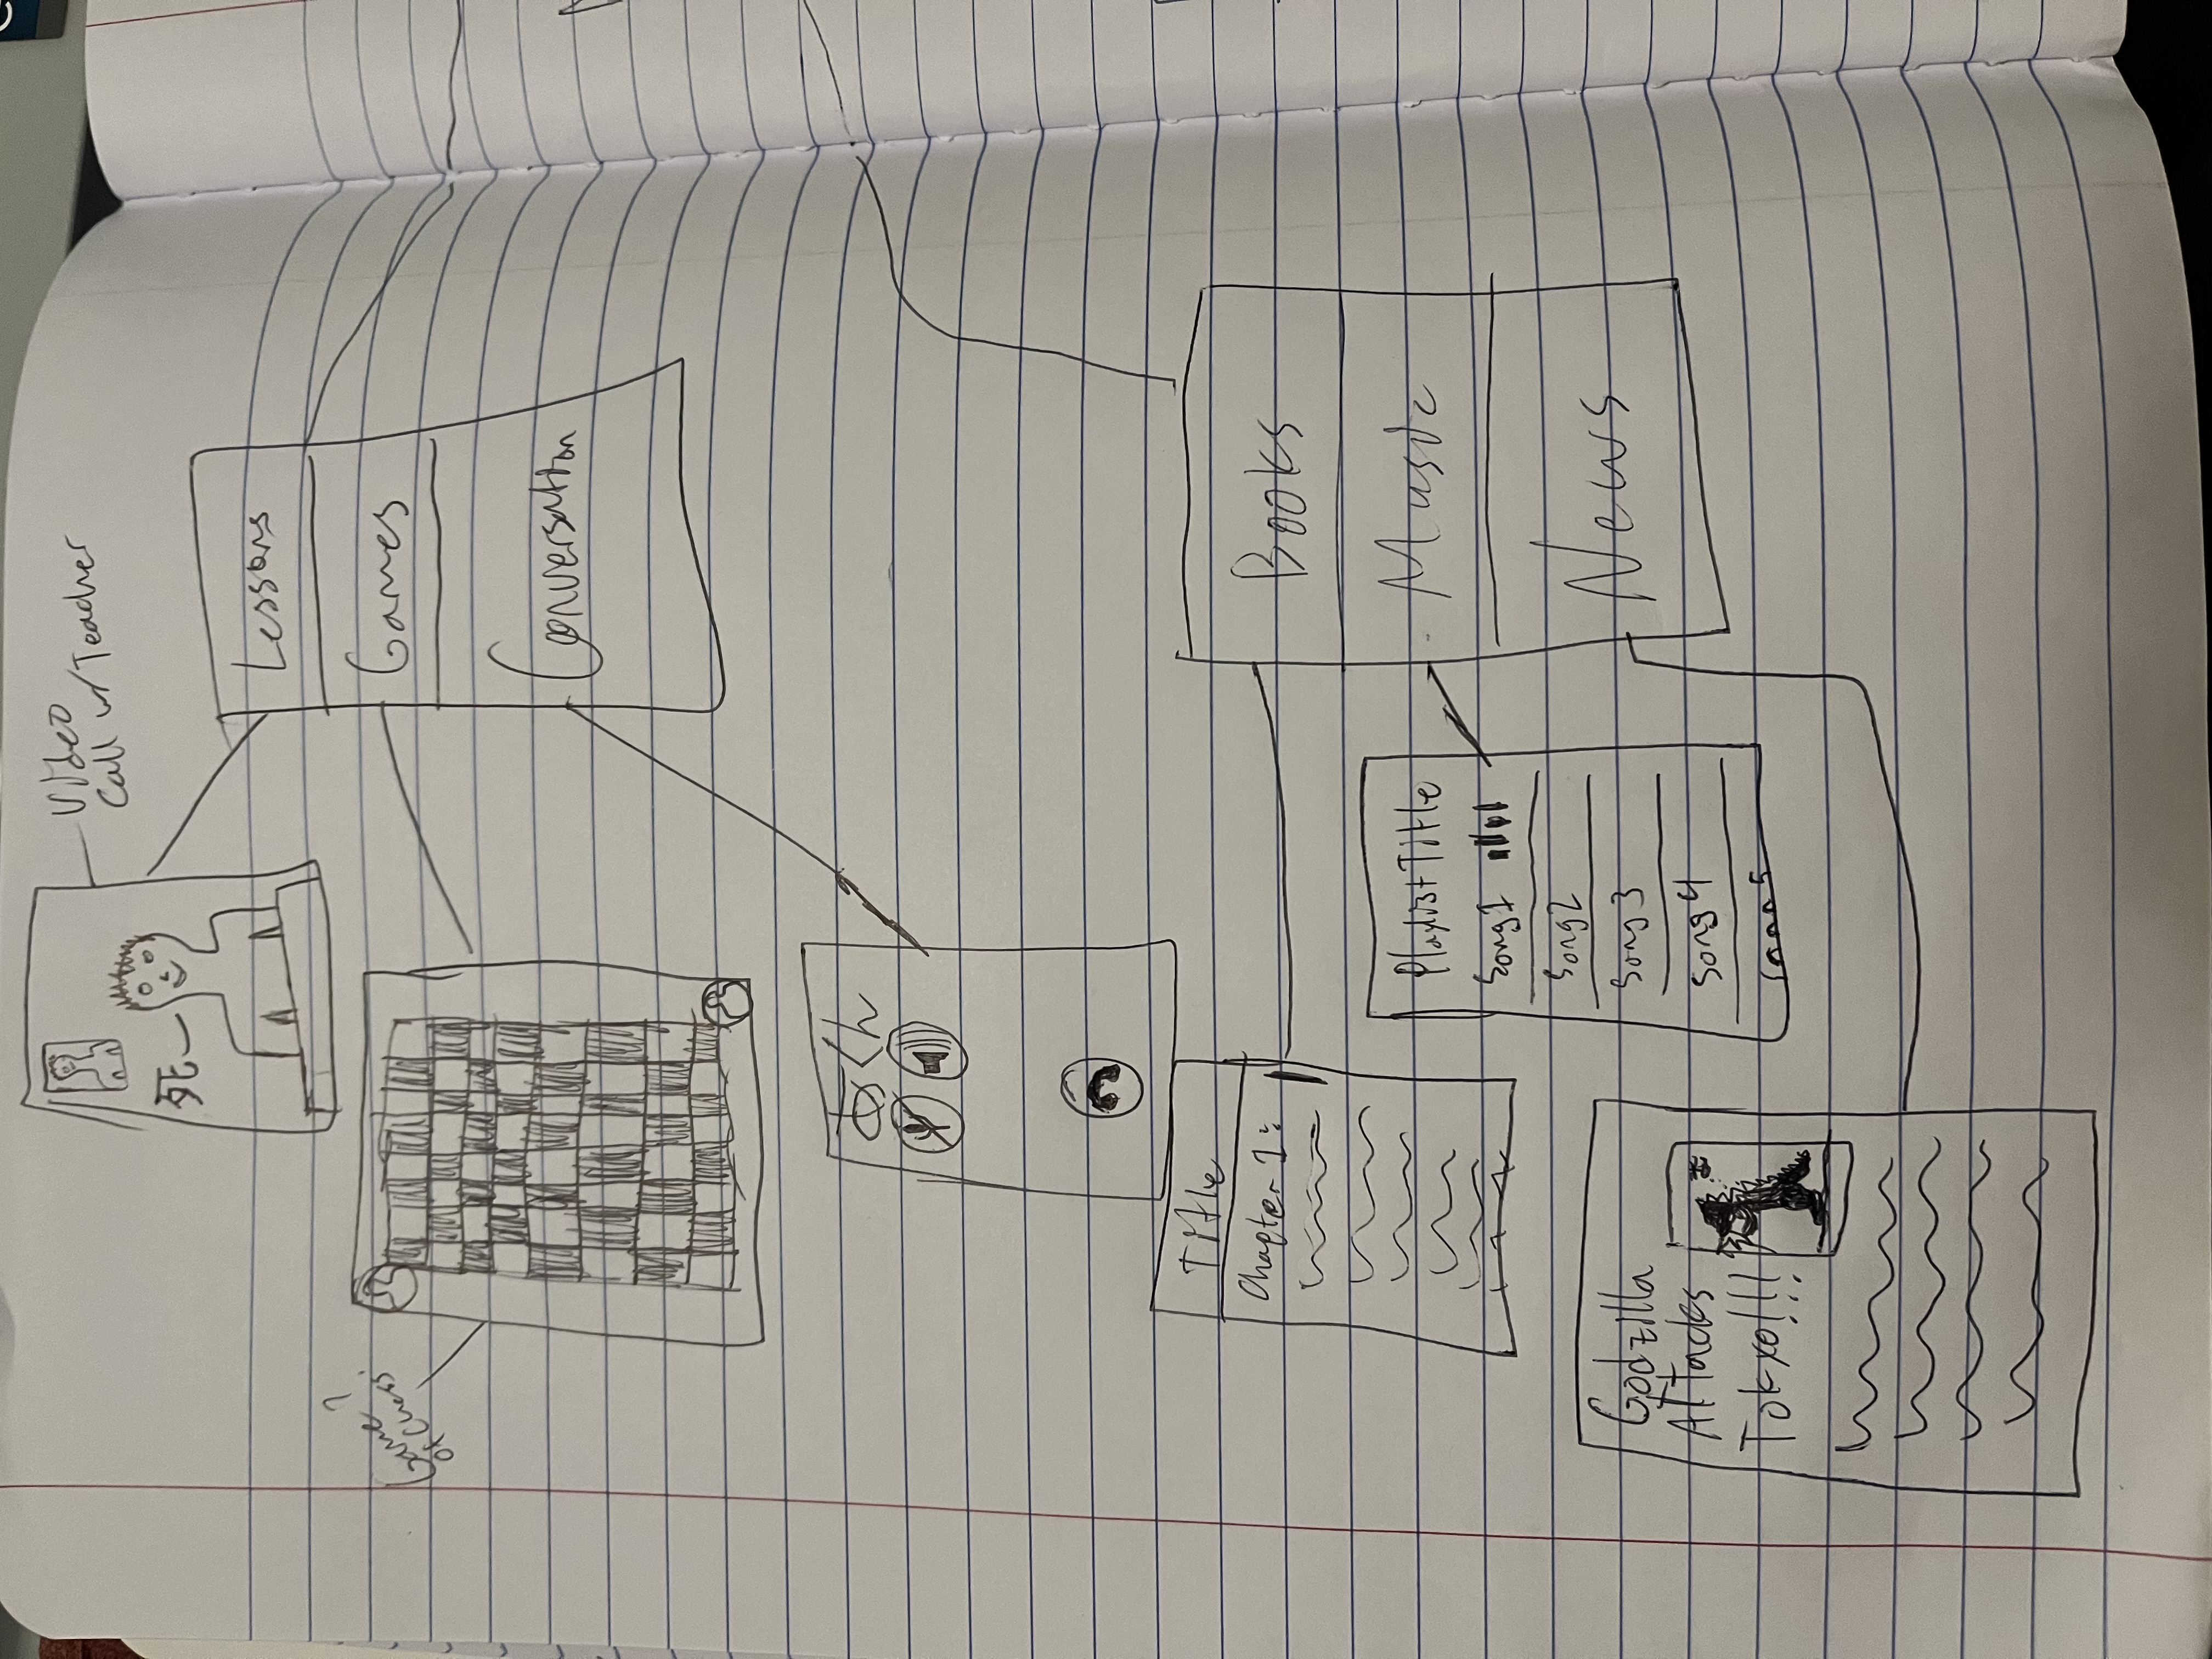 Video
Call w/ Teacher
死
Lessons
Games
Conversation
Game?
of Chess!
あくん
Title
Chapter 1:
Books
Music
News
Playlist Title
Song1
Song2
Song3
Song4
Song5
Godzilla
Attacks
Tokyo!!!